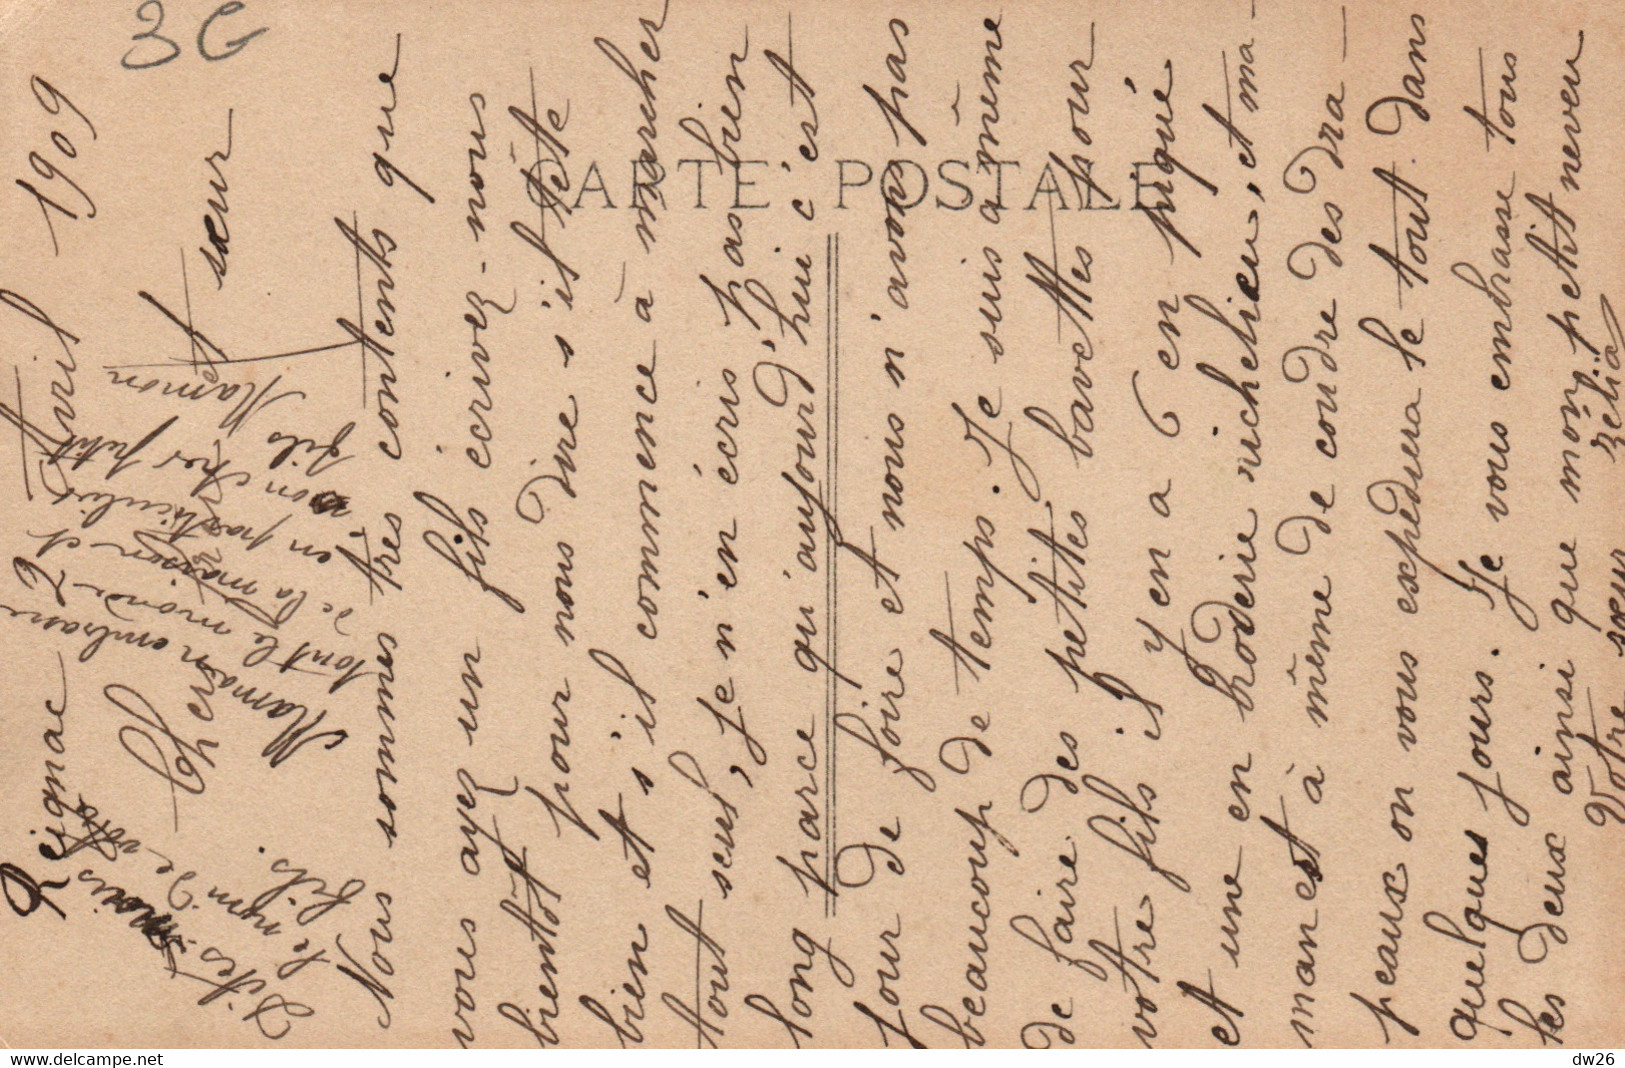 3G
Reignac 2 Avril 1909
Cher et sœur
Nous sommes très contents que
vous ayez un fils écrivez-nous
bientôt pour nous dire s'il tette
bien et s'il commence à marcher
tout seul, je n'en écris pas bien
long parce qu'aujourd'hui c'est
jour de foire et nous n'avons pas
beaucoup de temps. Je suis à même
de faire des petites bavettes pour
votre fils il y en a 6 en piqué
et une en broderie richelieu, et ma-
man est à même de coudre des dra-
peaux on vous expédiera le tout dans
quelques jours. Je vous embrasse tous
les deux ainsi que mon petit neveu
Votre sœur zélia
Maman embrasse
tout le monde
de la maison et
en particulier
mon cher petit
fils Mamon
Dites-nous
le nom de votre
fils.
CARTE POSTALE
www.delcampe.net
dw26